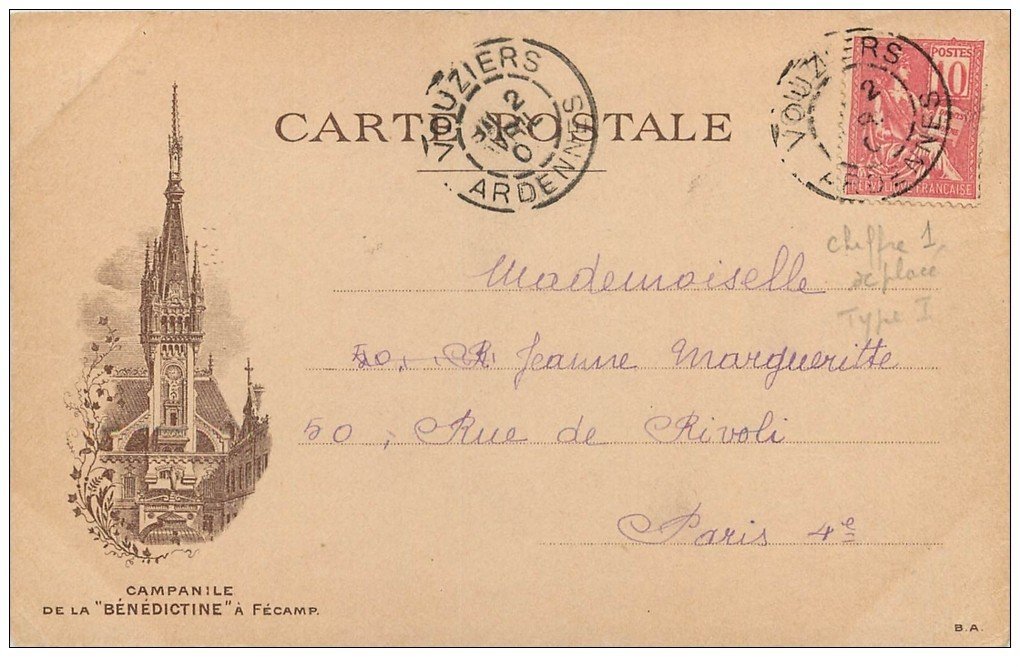 CARTE POSTALE
VOUZIERS
2
ARDENNES
VOUZIERS
2
POSTES
10
RÉPUBLIQUE FRANÇAISE
chiffre 1
Type I
Mademoiselle
50, R. Jeanne Margueritte
50, Rue de Rivoli
Paris 4e
CAMPANILE
DE LA "BÉNÉDICTINE" À FÉCAMP.
B.A.